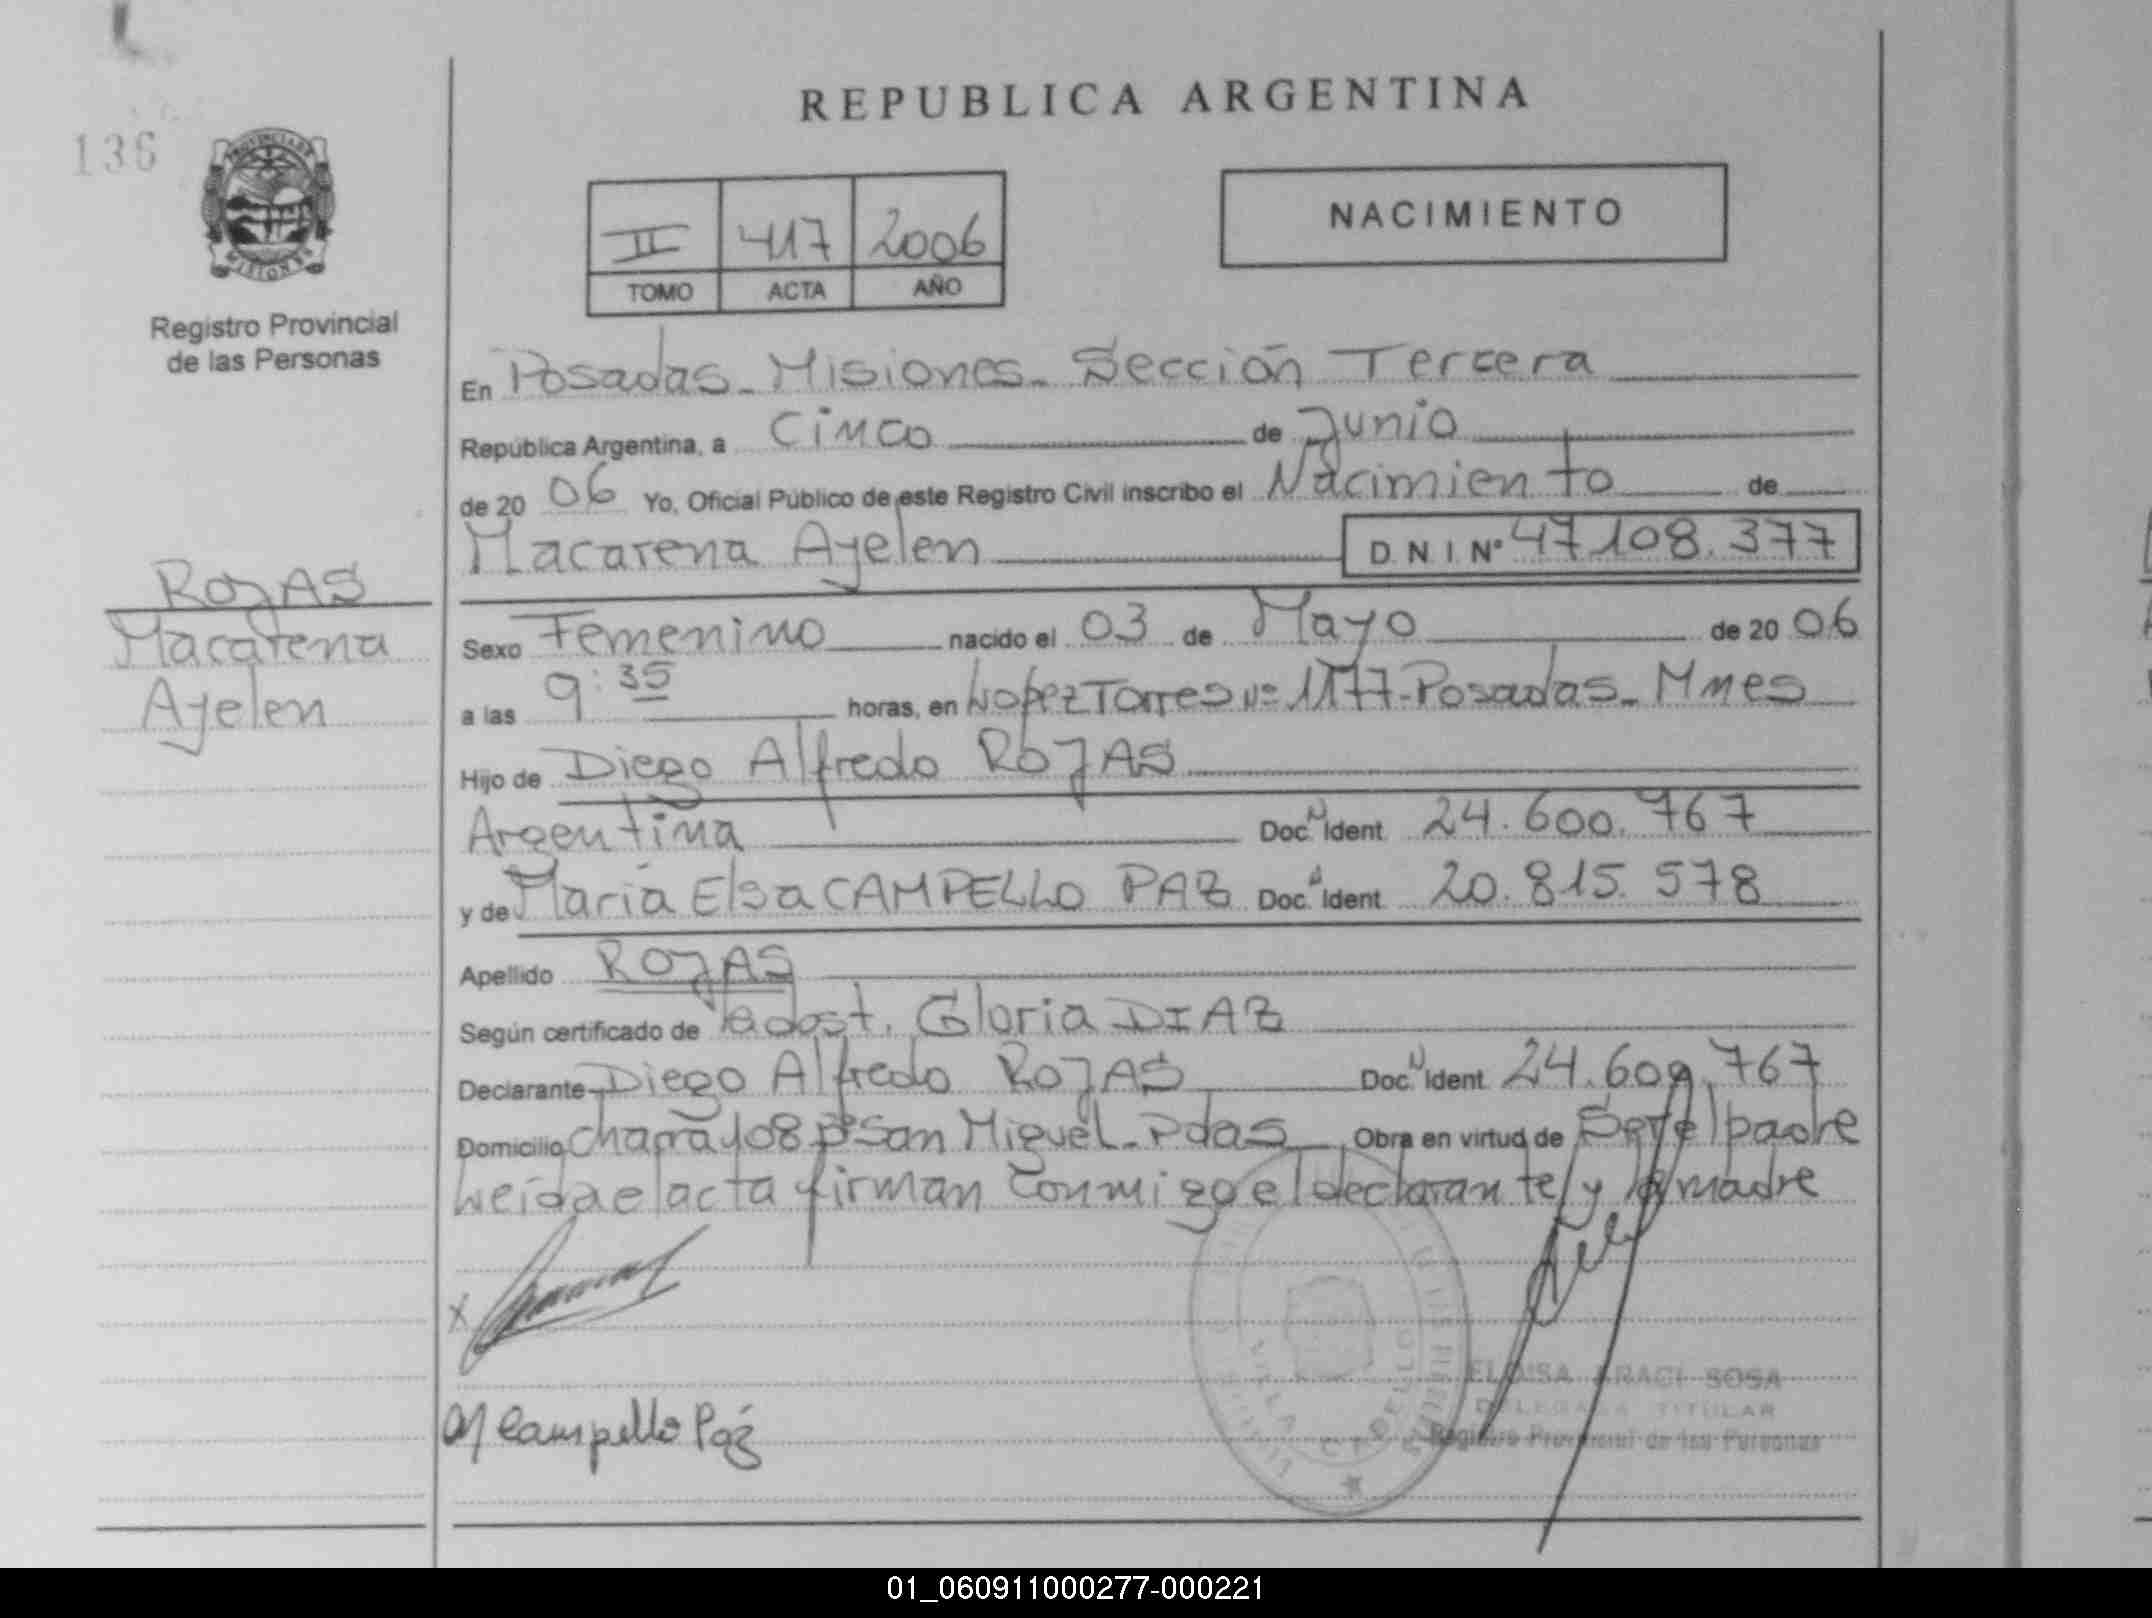 REPUBLICA ARGENTINA
136
PROVINCIA DE
MISIONES
Registro Provincial
de las Personas
II 417 2006
TOMO ACTA AÑO
NACIMIENTO
En Posadas - Misiones - Sección Tercera
República Argentina, a Cinco de Junio
de 20 06 Yo, Oficial Público de este Registro Civil inscribo el Nacimiento de
Macarena Ayelen D.N.I. Nº 47.108.377
ROJAS
Macarena
Ayelen
Sexo Femenino nacido el 03 de Mayo de 20 06
a las 9:35 horas, en Lopez Torres Nº 1177 - Posadas - Mnes
Hijo de Diego Alfredo ROJAS
Argentina Doc. Ident 24.600.767
y de María Elsa CAMPELLO PAZ Doc. Ident 20.815.578
Apellido ROJAS
Según certificado de la obst. Gloria DIAZ
Declarante Diego Alfredo ROJAS Doc. Ident 24.600.767
Domicilio chacra 108 Bº San Miguel - Pdas Obra en virtud de Ser el padre
Leída el acta firman conmigo el declarante y la madre
X
M Campello Páz
ELOISA ARACI SOSA
DELEGADA TITULAR
Registro Provincial de las Personas
01_060911000277-000221